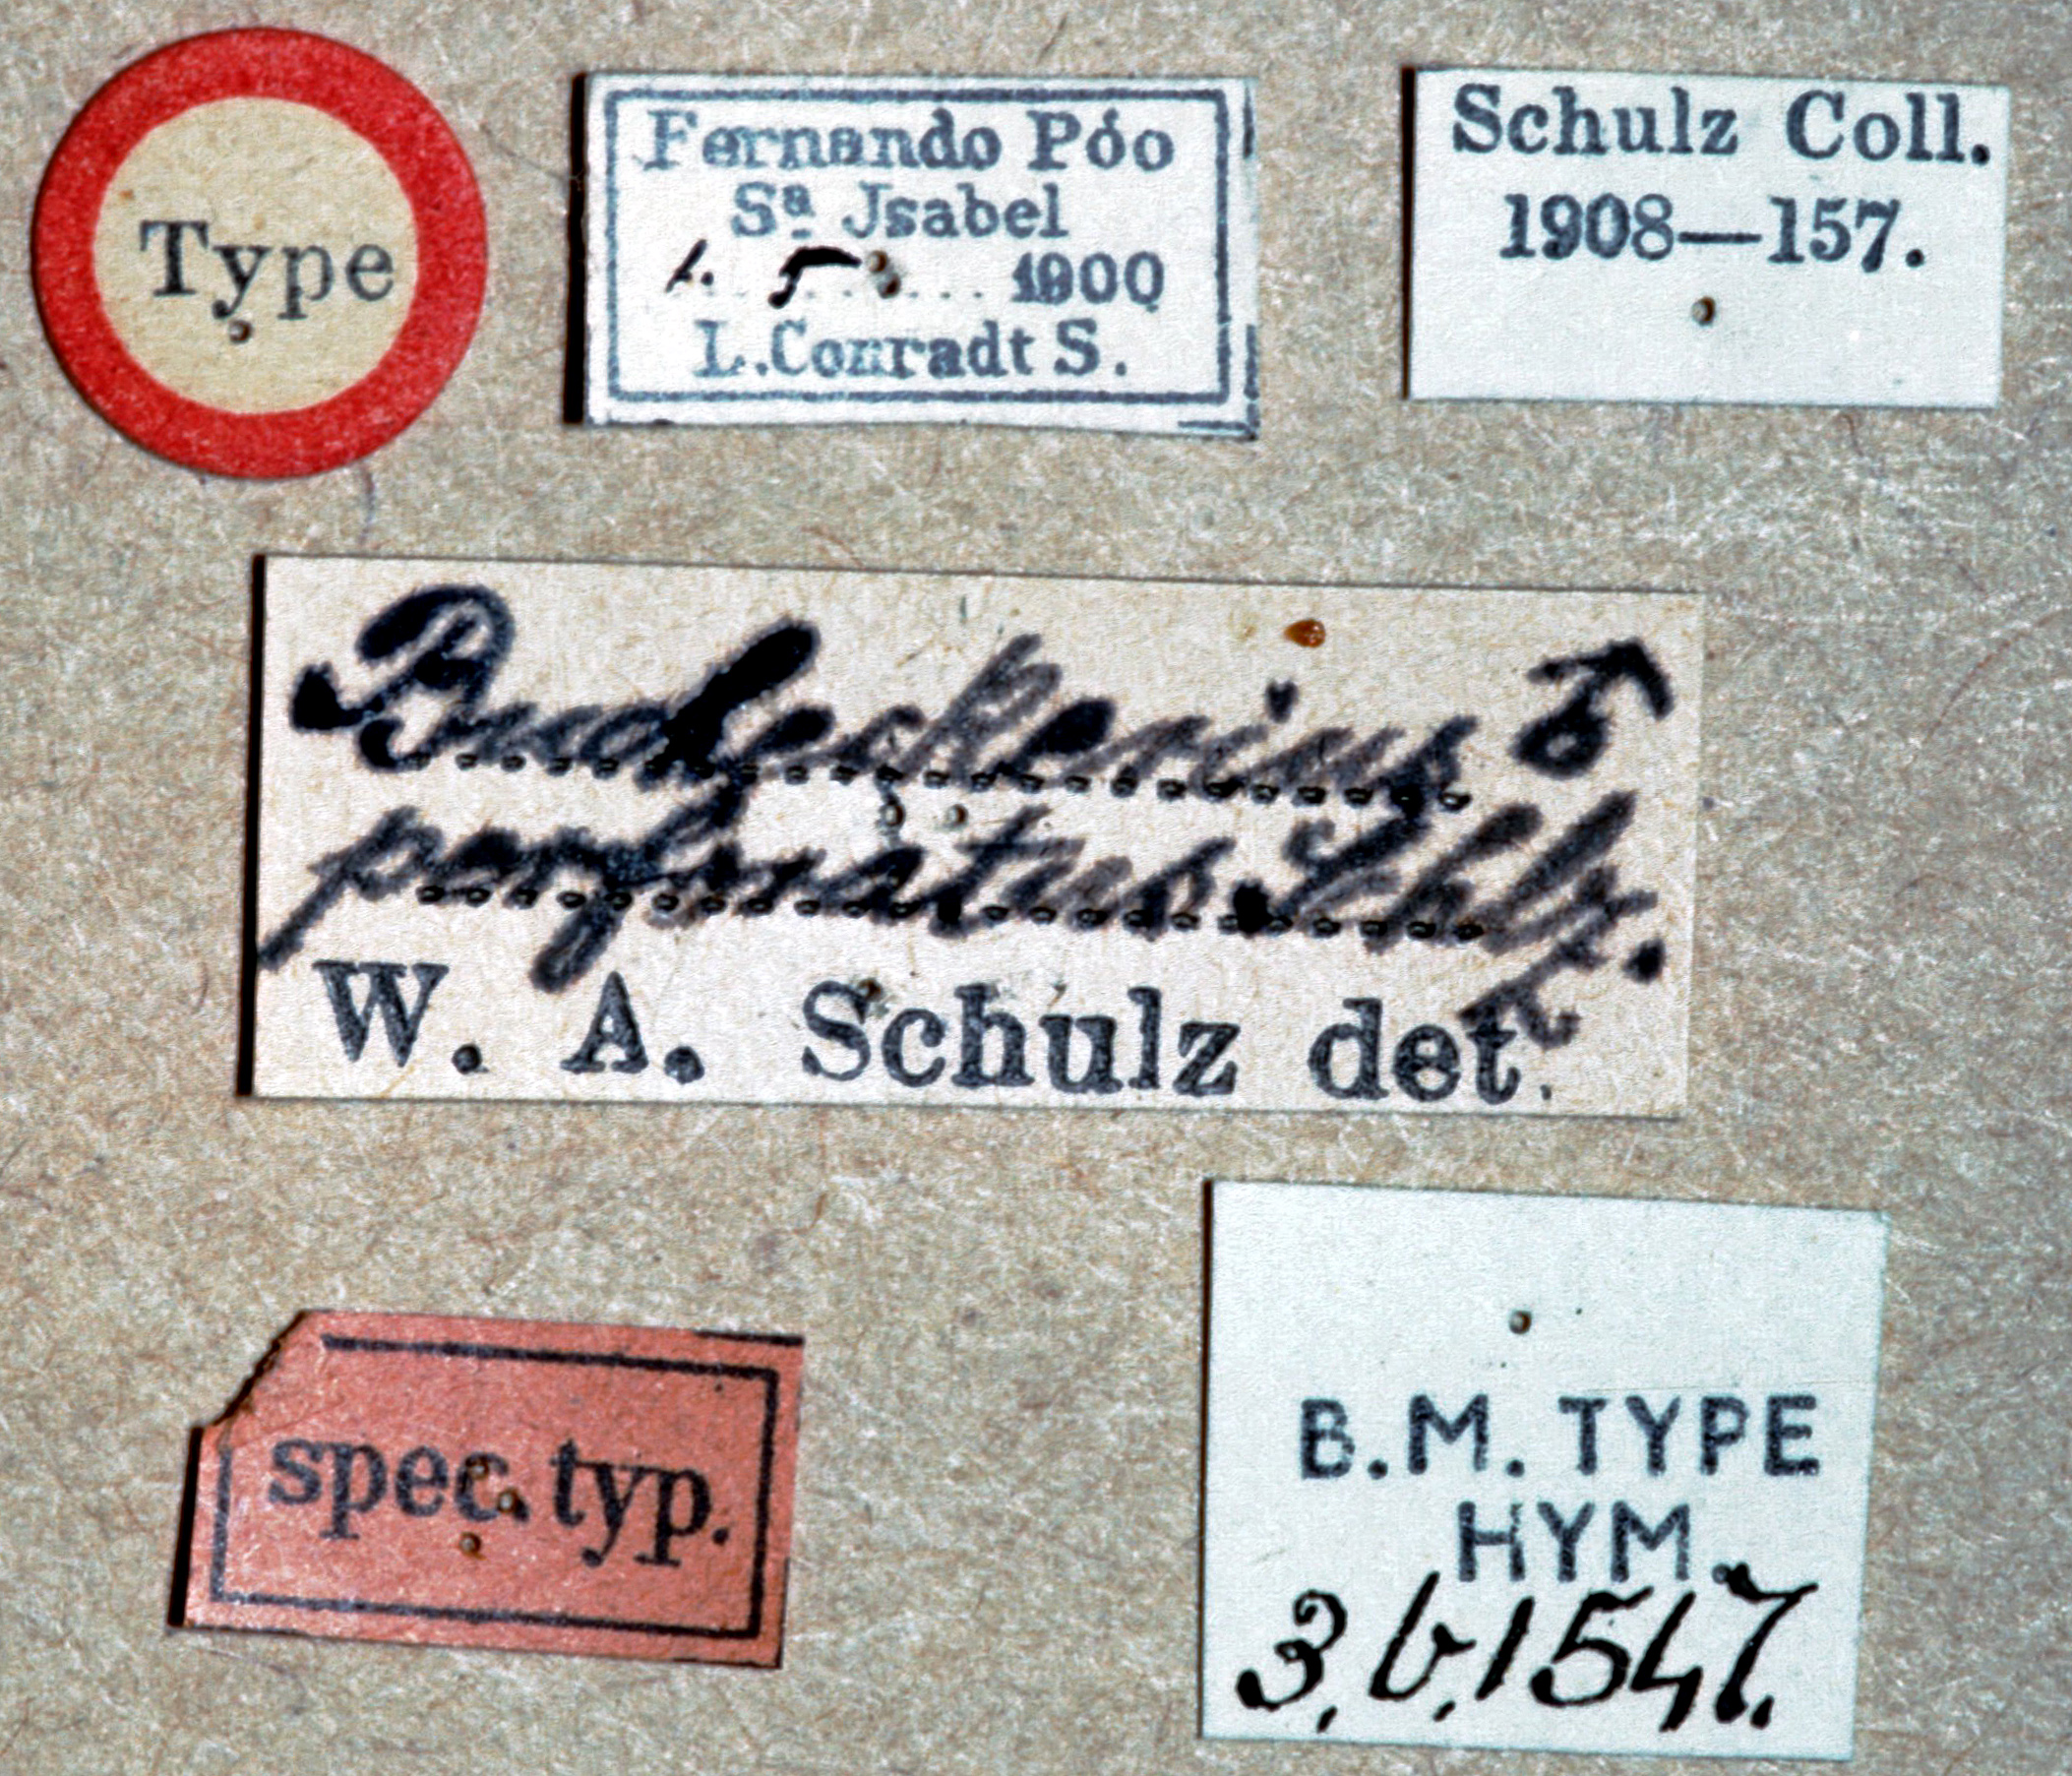 Type
Fernando Póo
Sª. Jsabel
1. 5 1900
L. Conradt S.
Schulz Coll.
1908—157.
Bucheckerius ♂
Schlz.
W. A. Schulz det.
spec. typ.
B.M. TYPE
HYM.
3,b,1547.